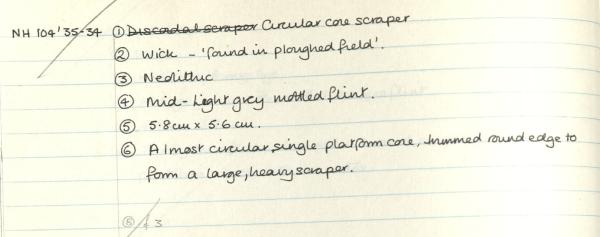 NH 104'35-34 ① Discoidal scraper Circular core scraper
② Wick - 'found in ploughed field'.
③ Neolithic
④ Mid-Light grey mottled flint.
⑤ 5.8cm x 5.6cm.
⑥ Almost circular, single platform core, trimmed round edge to
form a large, heavy scraper.
3